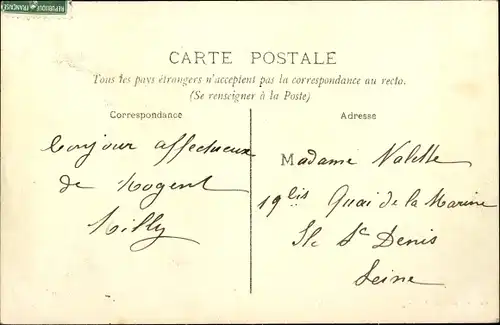 REPUBLIQUE FRANÇAISE
CARTE POSTALE
Tous les pays étrangers n'acceptent pas la correspondance au recto.
(Se renseigner à la Poste)
Correspondance
Bonjour affectueux
de Nogent
Milly
Adresse
Madame Valette
19bis Quai de la Marine
Ile St Denis
Seine